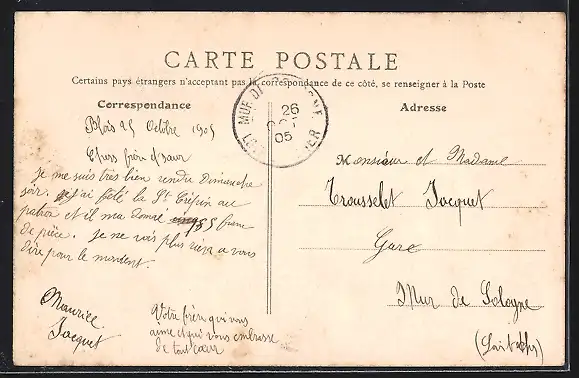 CARTE POSTALE
Certains pays étrangers n'acceptant pas la correspondance de ce côté, se renseigner à la Poste
Correspondance
Blois 25 Octobre 1905
Chers frère et sœur
je me suis très bien rendu Dimanche
soir. j'ai fêté la St Crépin au
patron et il ma donné 5 franc
de pièce. je ne vois plus rien a vous
dire pour le moment.
Maurice
Jacquet
Votre frère qui vous
aime et qui vous embrasse
de tout cœur
MUR DE SOLOGNE
26
OCT
05
LOIR ET CHER
Adresse
Monsieur et Madame
Trousselet Jacquet
Gare
Mur de Sologne
(Loir et Cher)